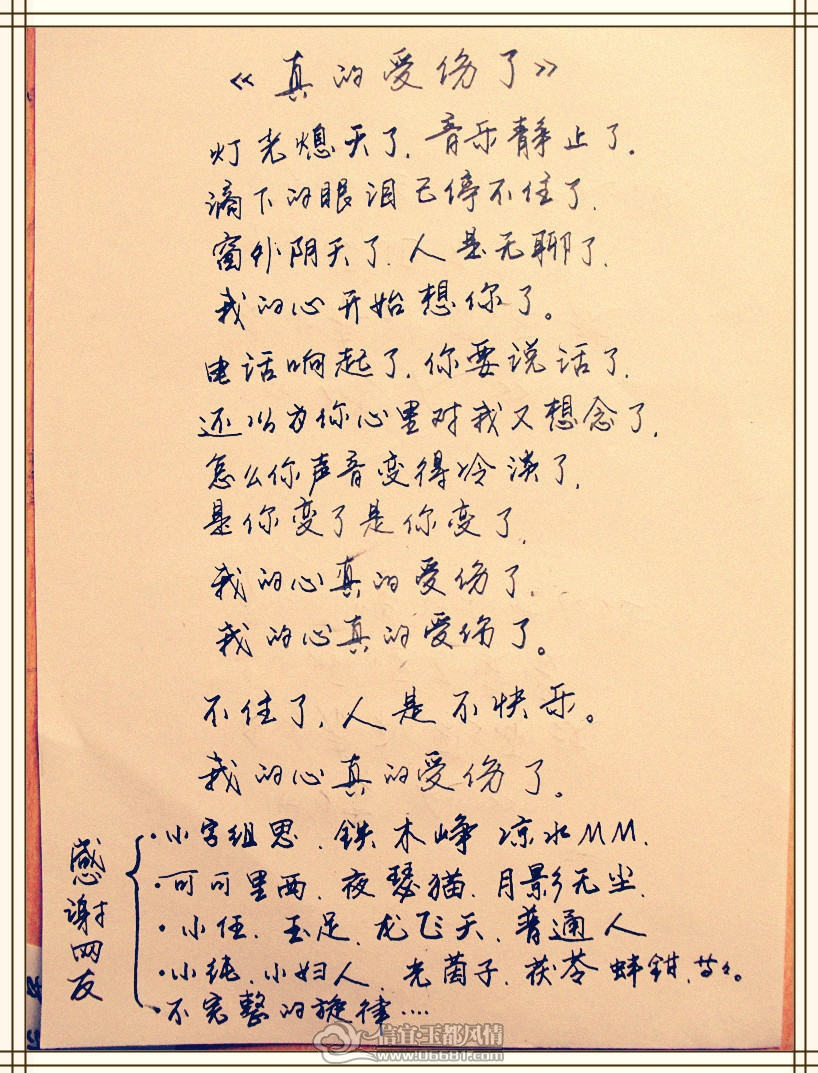 《真的爱伤了》
灯光熄灭了.音乐静止了.
滴下的眼泪已停不住了.
窗外阴天了.人是无聊了.
我的心开始想你了。
电话响起了.你要说话了.
还以为你心里对我又想念了.
怎么你声音变得冷淡了.
是你变了是你变了.
我的心真的爱伤了.
我的心真的爱伤了。
不住了.人是不快乐。
我的心真的爱伤了.
感谢网友
·小字组思.铁木峥 凉水MM.
·可可里西.夜瑟猫.月影无尘.
·小任.玉足.龙飞天.普通人
·小纯.小妇人.光茵子.茯苓蚌钳.等々。
·不完整的旋律····
信宜玉都风情
www.06681.com